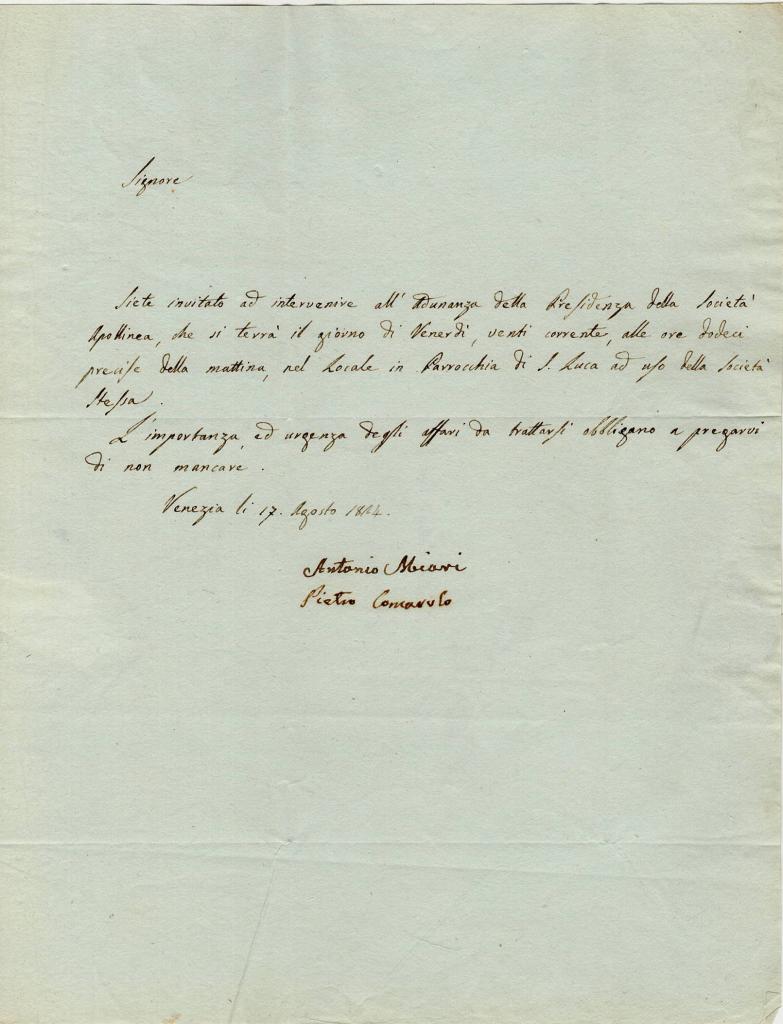 Signore
Siete invitato ad intervenire all' Adunanza della Presidenza della Società
Apollinea, che si terrà il giorno di Venerdì, venti corrente, alle ore dodeci
precise della mattina, nel Locale in Parrocchia di S. Luca ad uso della Società
stessa.
L'importanza, ed urgenza degli affari da trattarsi obbligano a pregarvi
di non mancare.
Venezia li 17. Agosto
Antonio Miari
Pietro